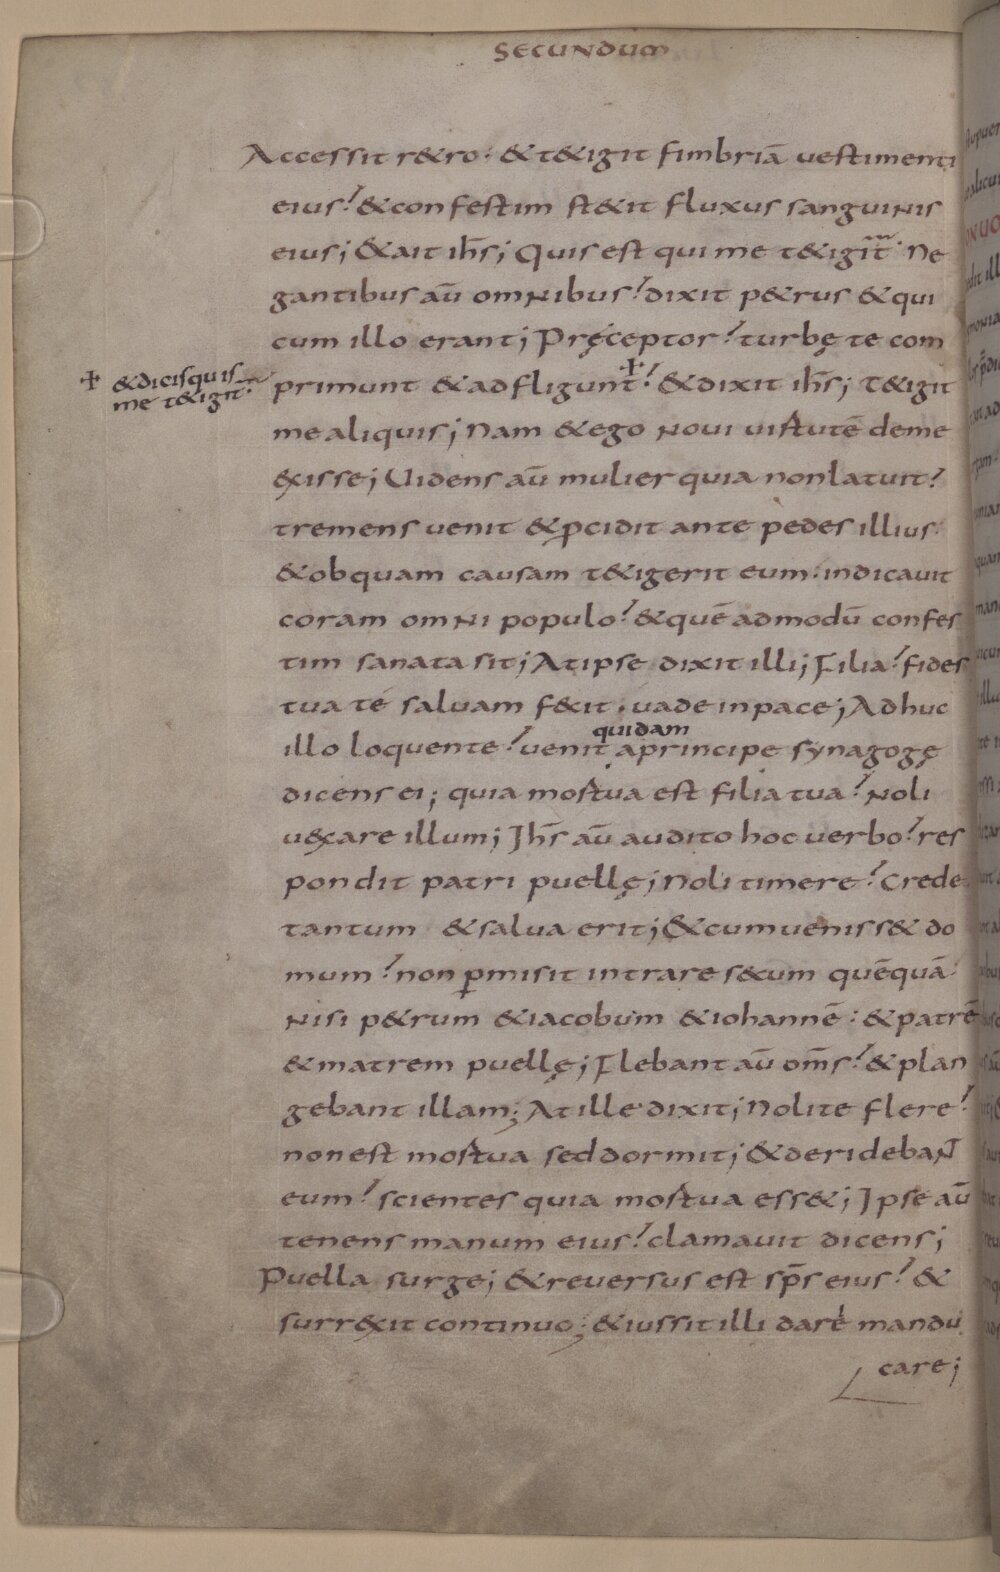 SECUNDUM
Accessit r&ro· &t&igit fimbriā vestimenti
eius? &confestim st&it fluxus sanguinis
eius; &ait ih̄s; Quis est qui me t&igit̄· Ne
gantibus aū omnibus? dixit p&rus &qui
cum illo erant; Pręceptor? turbę te com
primunt &adfligunt? ☩ &dixit ih̄s; T&igit
☩ &dicis quis
me t&igit·
me aliquis; Nam &ego novi virtutē deme
exisse; Videns aū mulier quia nonlatuit?
tremens venit &p̄cidit ante pedes illius·
&obquam causam t&igerit eum· indicavit
coram omni populo? &quē admodū confes
tim sanata sit; At ipse dixit illi; Filia? fides
tua te salvam fecit· vade inpace; Adhuc
quidam
illo loquente? venit aprincipe synagogę
dicens ei; quia mortua est filia tua? Noli
vexare illum; Ih̄s aū audito hoc verbo? res
pondit patri puellę; Noli timere? Crede
tantum &salva erit; &cum veniss& do
mum? non p̱misit intrare secum quēquā·
Nisi p&rum &iacobum &iohannē· &patrē
&matrem puellę; Flebant aū om̄s? &plan
gebant illam; At ille dixit; Nolite flere?
non est mortua sed dormit; &deridebant
eum? scientes quia mortua ess&; Ipse aū
tenens manum eius? clamavit dicens;
Puella surge; &reversus est sp̄s eius? &
surrexit continuo; &iussit illi dare mandu
care;